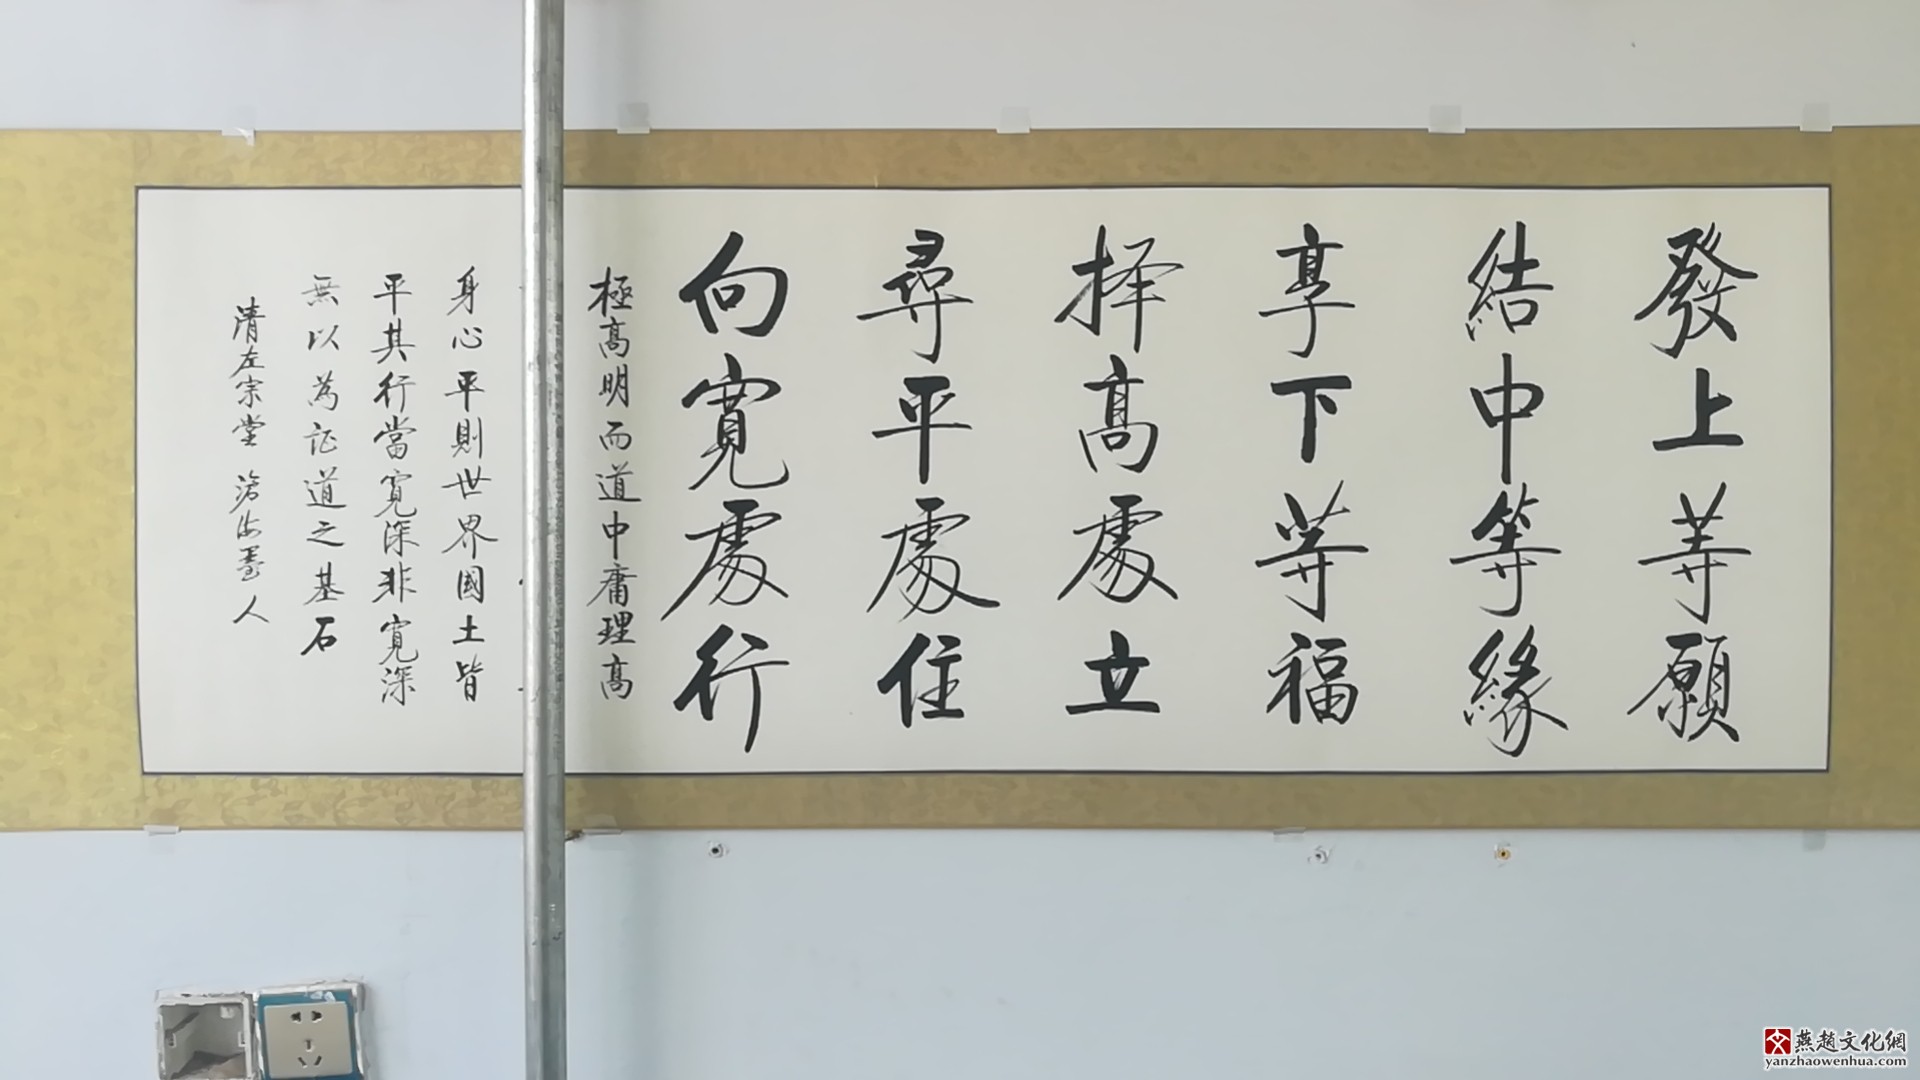 發上等願
結中等緣
享下等福
择高處立
尋平處住
向寬處行
極高明而道中庸理高
身心平則世界國土皆
平其行當寬深非寬深
無以為証道之基石
清左宗堂
人
燕趙文化網
yanzhaowenhua.com